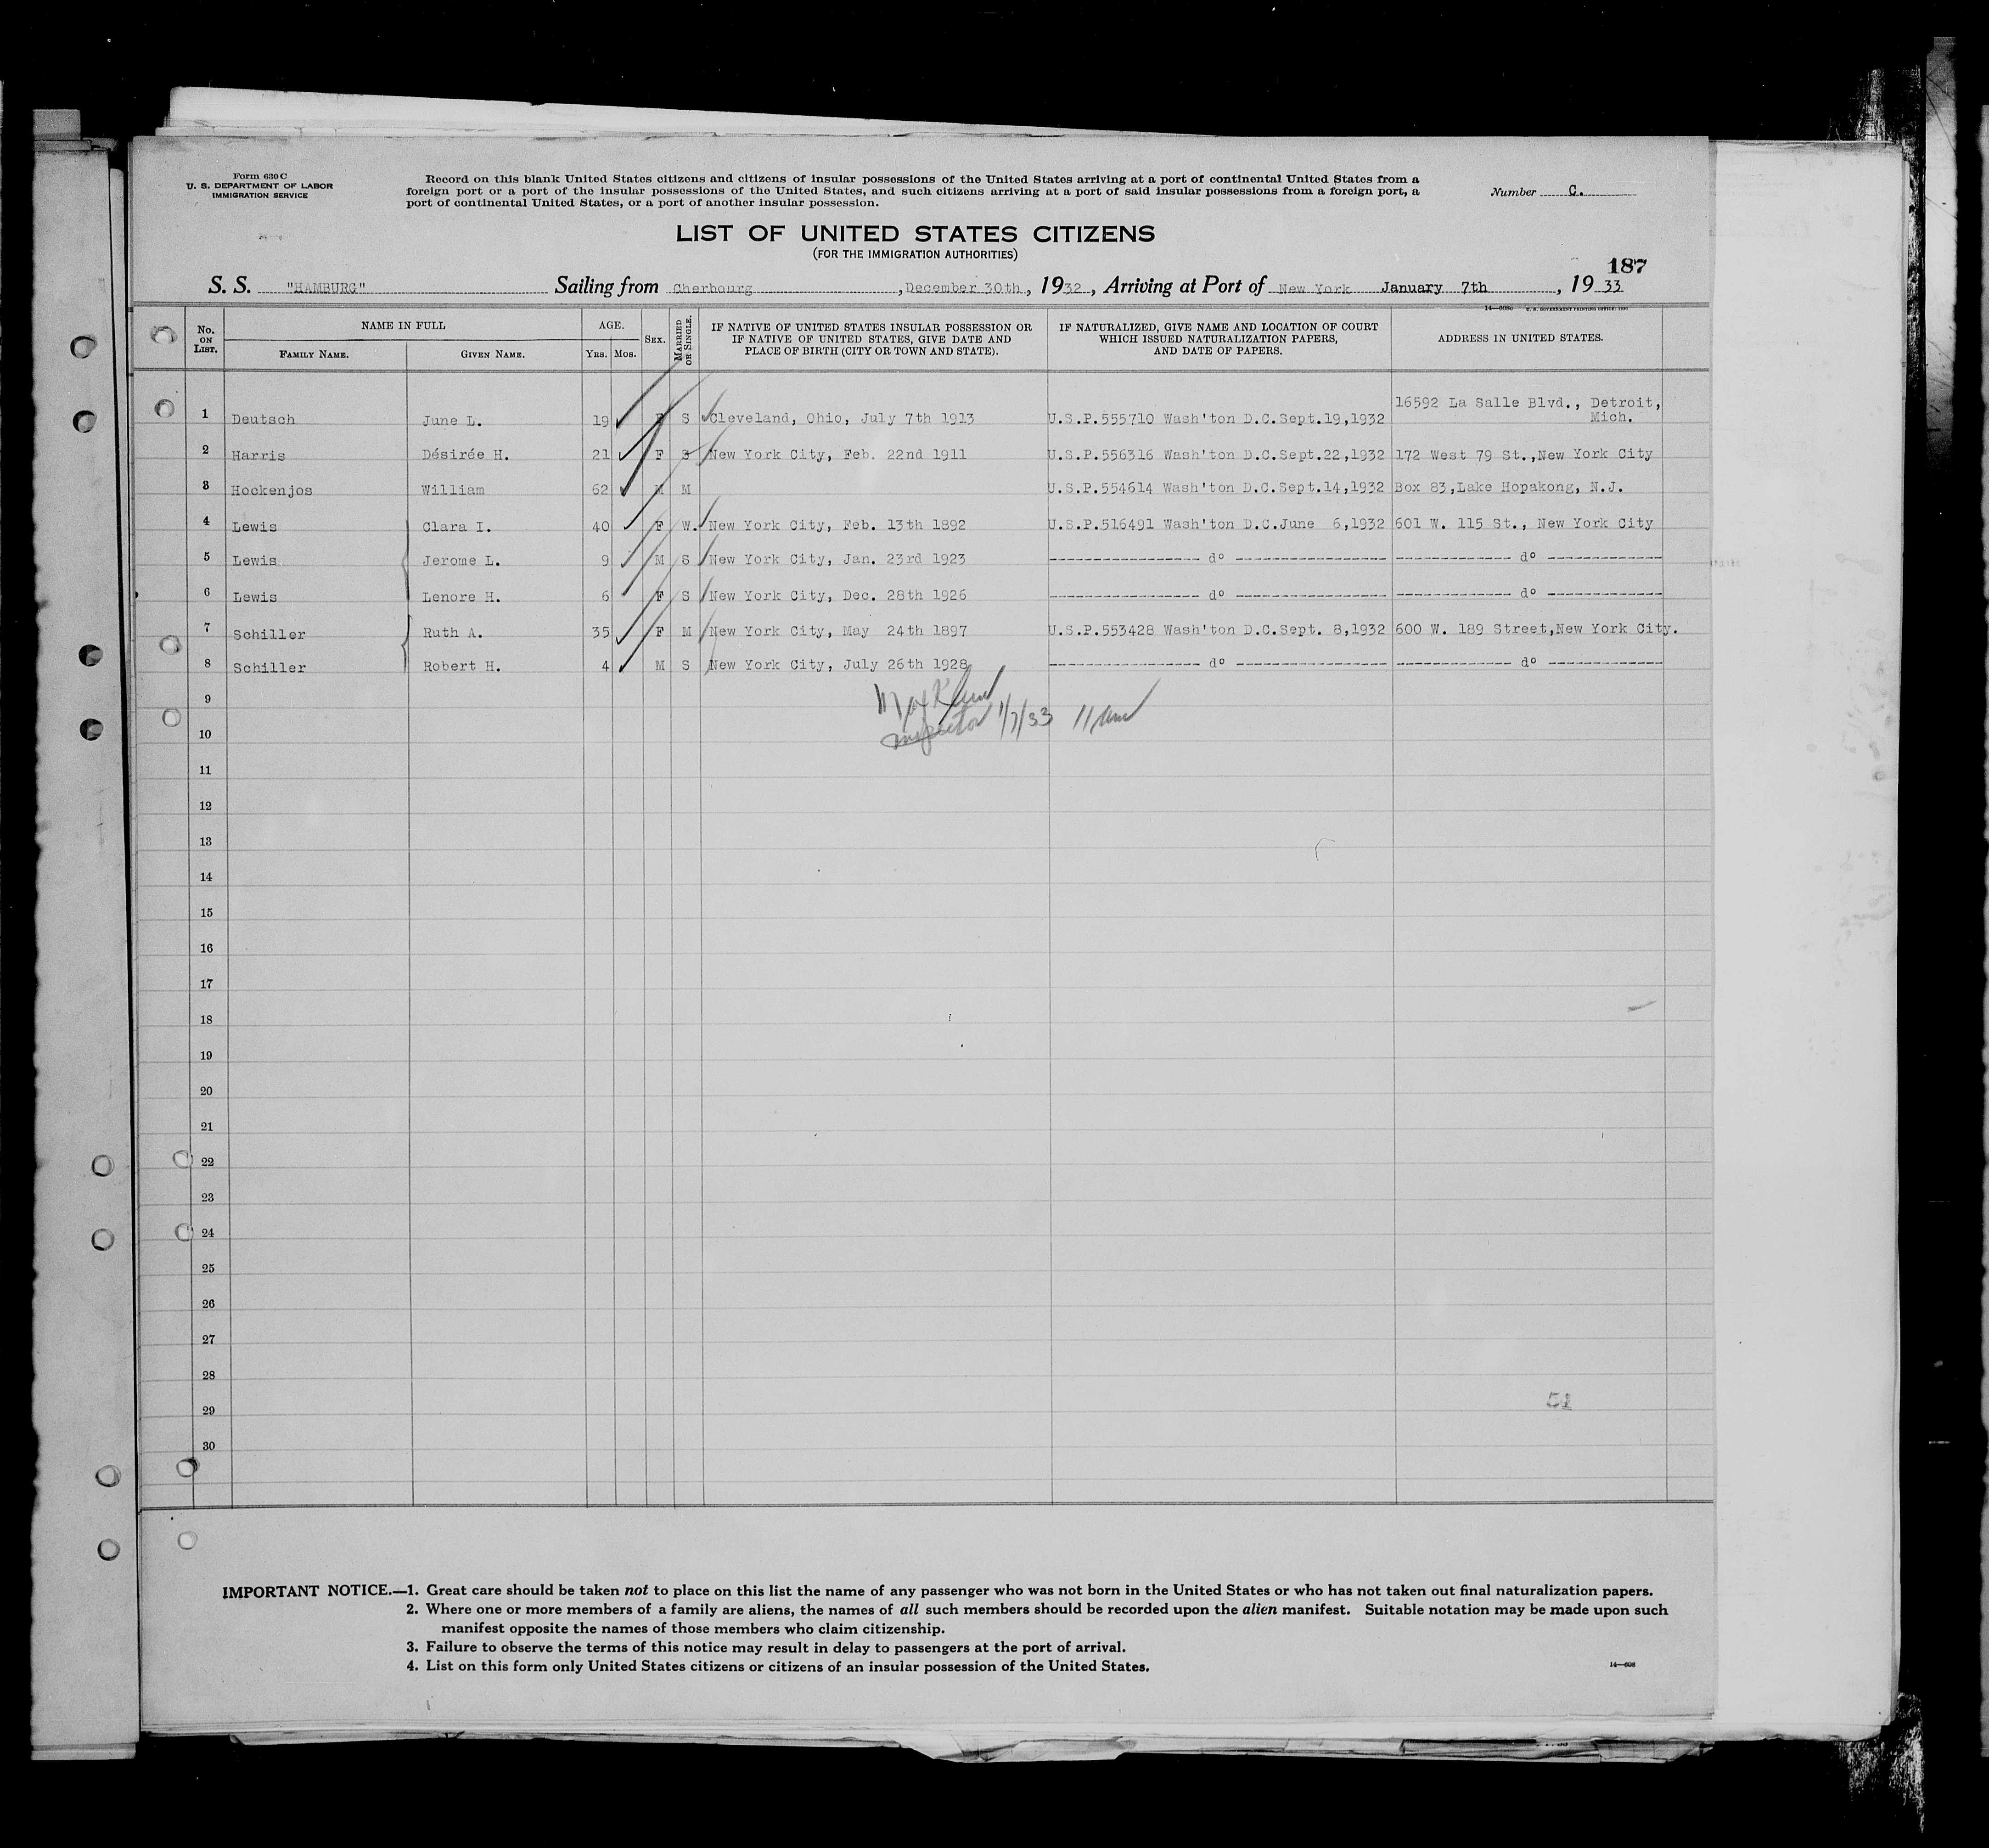 Form 630 C
U. S. DEPARTMENT OF LABOR
IMMIGRATION SERVICE
Record on this blank United States citizens and citizens of insular possessions of the United States arriving at a port of continental United States from a
foreign port or a port of the insular possessions of the United States, and such citizens arriving at a port of said insular possessions from a foreign port, a
port of continental United States, or a port of another insular possession.
Number C.
LIST OF UNITED STATES CITIZENS
(FOR THE IMMIGRATION AUTHORITIES)
187
S. S. "HAMBURG" Sailing from Cherbourg, December 30th, 1932, Arriving at Port of New York January 7th, 1933
No. ON LIST. NAME IN FULL FAMILY NAME. GIVEN NAME. AGE. YRS. MOS. SEX. MARRIED OR SINGLE. IF NATIVE OF UNITED STATES INSULAR POSSESSION OR IF NATIVE OF UNITED STATES, GIVE DATE AND PLACE OF BIRTH (CITY OR TOWN AND STATE). IF NATURALIZED, GIVE NAME AND LOCATION OF COURT WHICH ISSUED NATURALIZATION PAPERS, AND DATE OF PAPERS. ADDRESS IN UNITED STATES.
1 Deutsch June L. 19 F S Cleveland, Ohio, July 7th 1913 U.S.P.555710 Wash'ton D.C.Sept.19,1932 16592 La Salle Blvd., Detroit, Mich.
2 Harris Désirée H. 21 F S New York City, Feb. 22nd 1911 U.S.P.556316 Wash'ton D.C.Sept.22,1932 172 West 79 St.,New York City
3 Hockenjos William 62 M M U.S.P.554614 Wash'ton D.C.Sept.14,1932 Box 83,Lake Hopakong, N.J.
4 Lewis Clara I. 40 F W. New York City, Feb. 13th 1892 U.S.P.516491 Wash'ton D.C.June 6,1932 601 W. 115 St., New York City
5 Lewis Jerome L. 9 M S New York City, Jan. 23rd 1923 do do
6 Lewis Lenore H. 6 F S New York City, Dec. 28th 1926 do do
7 Schiller Ruth A. 35 F M New York City, May 24th 1897 U.S.P.553428 Wash'ton D.C.Sept. 8,1932 600 W. 189 Street,New York City.
8 Schiller Robert H. 4 M S New York City, July 26th 1928 do do
9
Max
10 Inspector 1/7/33 11 am
11
12
13
14
15
16
17
18
19
20
21
22
23
24
25
26
27
28
51
29
30
IMPORTANT NOTICE.—1. Great care should be taken not to place on this list the name of any passenger who was not born in the United States or who has not taken out final naturalization papers.
2. Where one or more members of a family are aliens, the names of all such members should be recorded upon the alien manifest. Suitable notation may be made upon such
manifest opposite the names of those members who claim citizenship.
3. Failure to observe the terms of this notice may result in delay to passengers at the port of arrival.
4. List on this form only United States citizens or citizens of an insular possession of the United States.
14—608